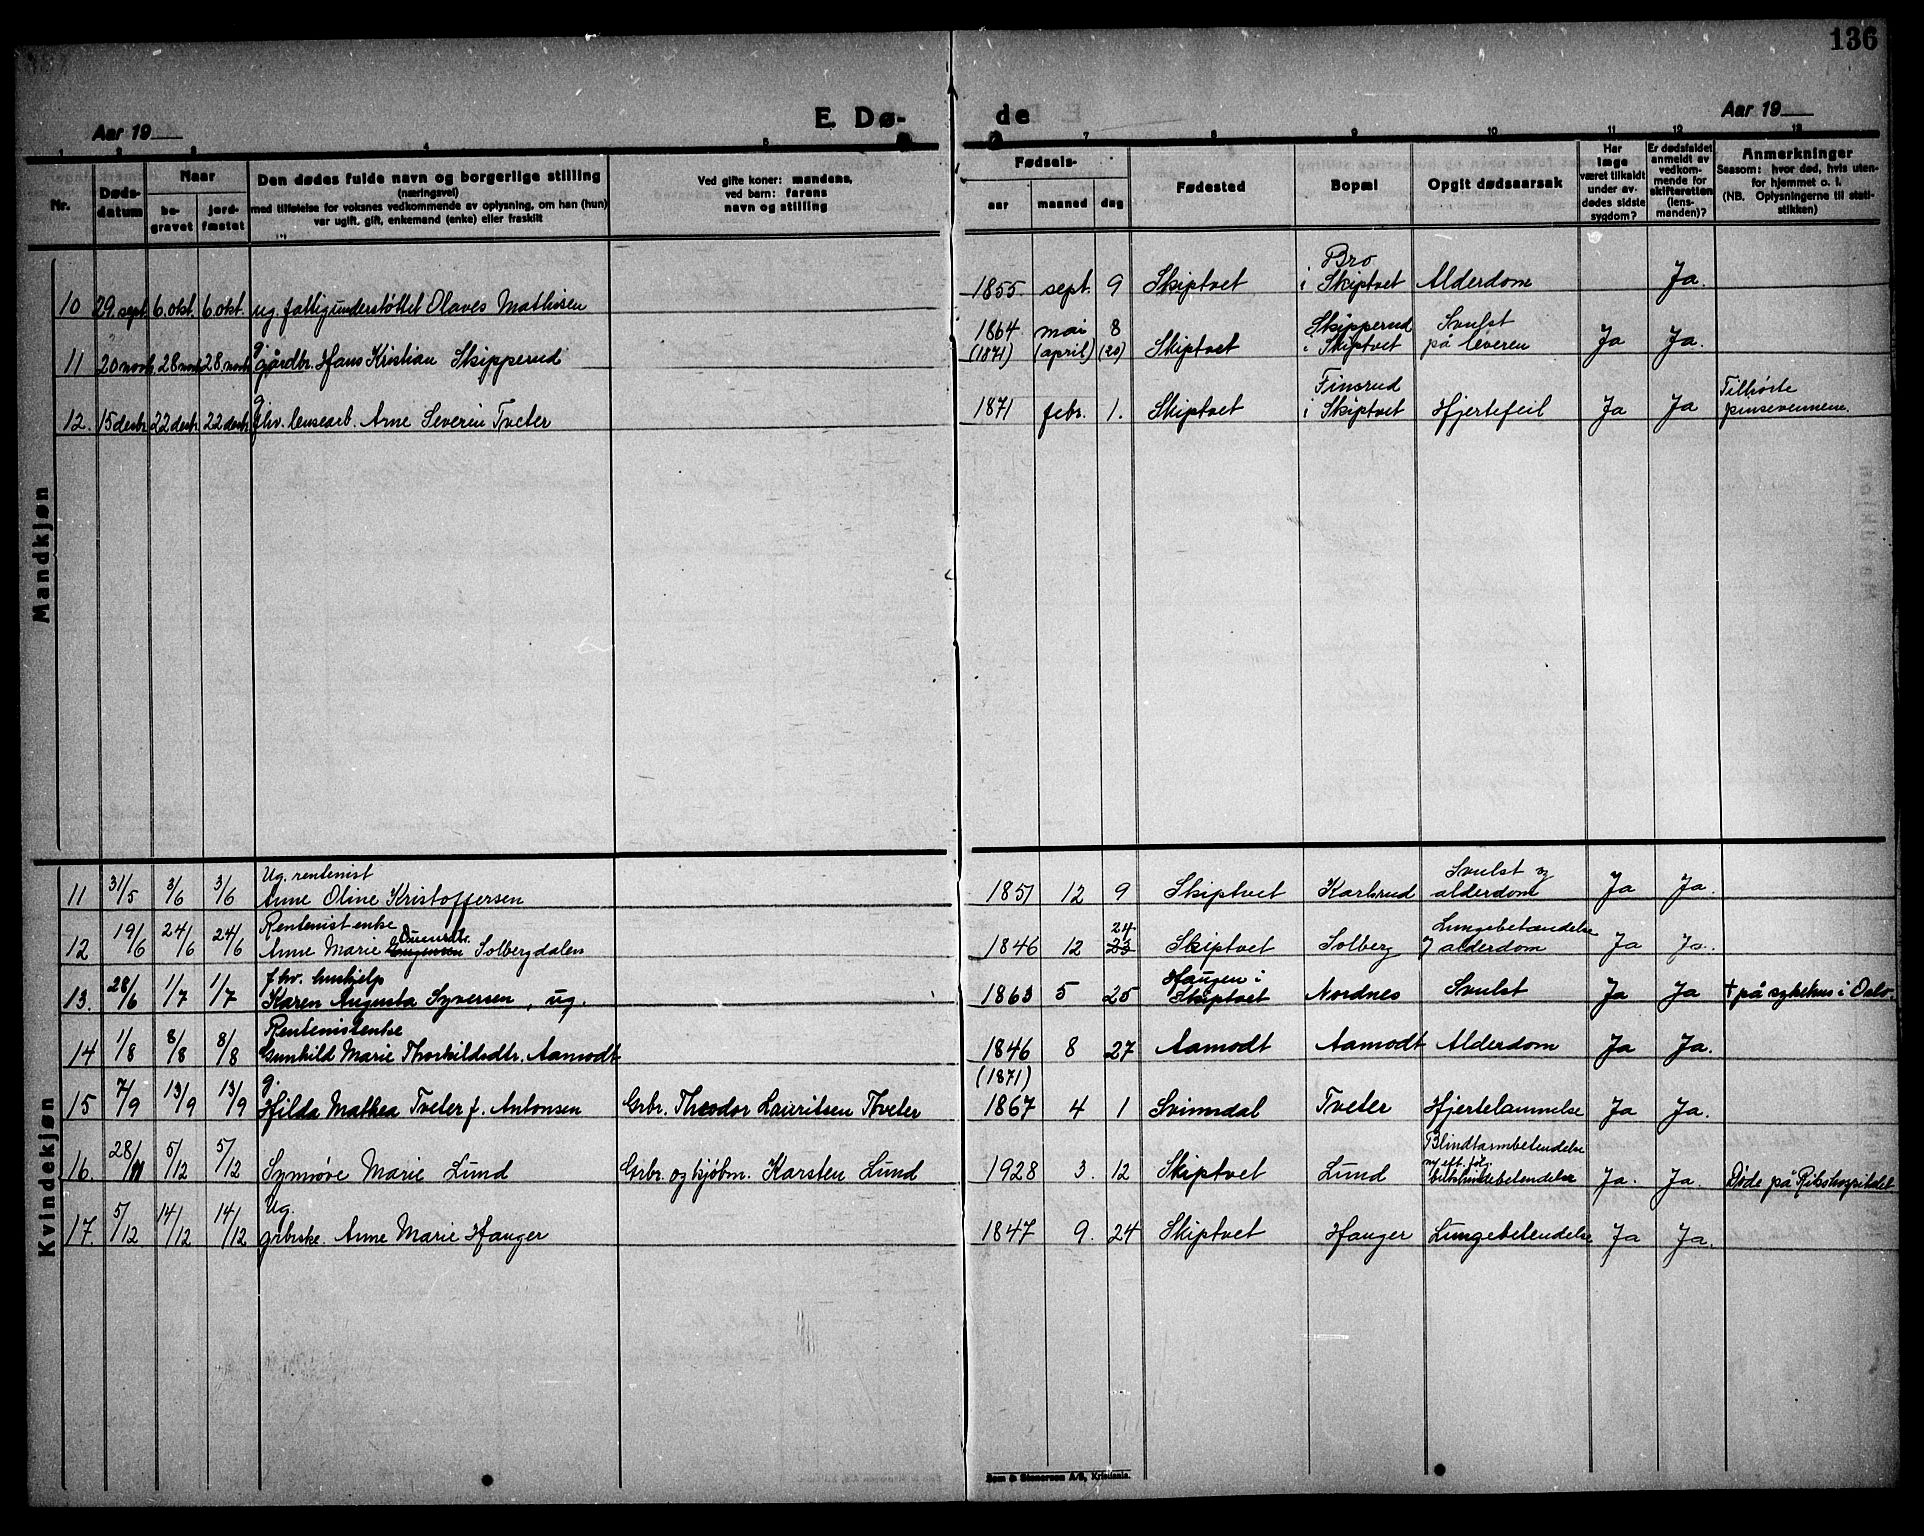 136
Aar 19
E. Dø-
de
Aar 19
1 2 3 4 5 7 8 9 10 11 12 13
Nr.
Døds-
datum
Naar
be-
gravet
jord-
fæstet
Den dødes fulde navn og borgerlige stilling
(næringsvei)
med tilføielse for voksnes vedkommende av oplysning, om han (hun)
var ugift, gift, enkemand (enke) eller fraskilt
Ved gifte koner: mandens,
ved barn: farens
navn og stilling
Fødsels-
aar maaned dag
Fødested
Bopæl
Opgit dødsaarsak
Har
læge
været tilkaldt
under av-
dødes sidste
sygdom?
Er dødsfaldet
anmeldt av
vedkom-
mende for
skifteretten
(lens-
manden)?
Anmerkninger
Saasom: hvor død, hvis uten-
for hjemmet o. l.
(NB. Oplysningerne til stati-
stikken)
Mandkjøn
Bro
10 29. sept 6. okt. 6. okt. ug. fattigunderstøttet Olaves Mathisen 1855 sept. 9 Skiptvet i Skiptvet Alderdom Ja.
1864 mai 8 Skipperud Svulst
11 20 novb 28 novb 28 novb g gårdbr. Hans Kristian Skipperud (1871) (april) (20) Skiptvet i Skiptvet på leveren Ja Ja.
Finsrud Tilhørte
12. 15 desbr 22 desbr 22 desbr g fhv. lensearb. Arne Severin Tveter 1871 febr. 1. Skiptvet i Skiptvet Hjertefeil Ja Ja pinsevennene.
Kvindekjøn
Ug. rentenist Svulst og
11 31/5 3/6 3/6 Anne Oline Kristoffersen 1851 12 9 Skiptvet Karlsrud alderdom Ja Ja.
Rentenistenke 24 Lungebetændelse
12 19/6 24/6 24/6 Anne Marie Solbergdalen 1846 12 23 Skiptvet Solberg og alderdom Ja Ja.
fhv. hushjelp Haugen i
13. 28/6 1/7 1/7 Karen Augusta Syversen, ug. 1863 5 25 Skiptvet Nordnes Svulst Ja Ja + på sykehus i Oslo.
Rentenistenke
14 1/8 8/8 8/8 Gunhild Marie Thorkildsdtr. Aamodt 1846 8 27 Aamodt Aamodt Alderdom Ja Ja.
g. (1871)
15 7/9 13/9 13/9 Hilda Mathea Tveter f. Antonsen Grbr. Theodor Lauritsen Thveter 1867 4 1 Svinndal Tveter Hjertelammelse Ja Ja.
Blindtarmbetendelse
og eft. følg.
16. 28/11 5/12 5/12 Synnøve Marie Lund Grbr. og kjøbm. Karsten Lund 1928 3. 12 Skiptvet Lund bukhindebetendelse Ja. Ja. Døde på Rikshospitalet
Ug.
17. 5/12 14/12 14/12 grbrske. Anne Marie Hauger 1847 9. 24 Skiptvet Hauger Lungebetendelse Ja Ja.
Sem & Stenersen A/S, Kristiania.